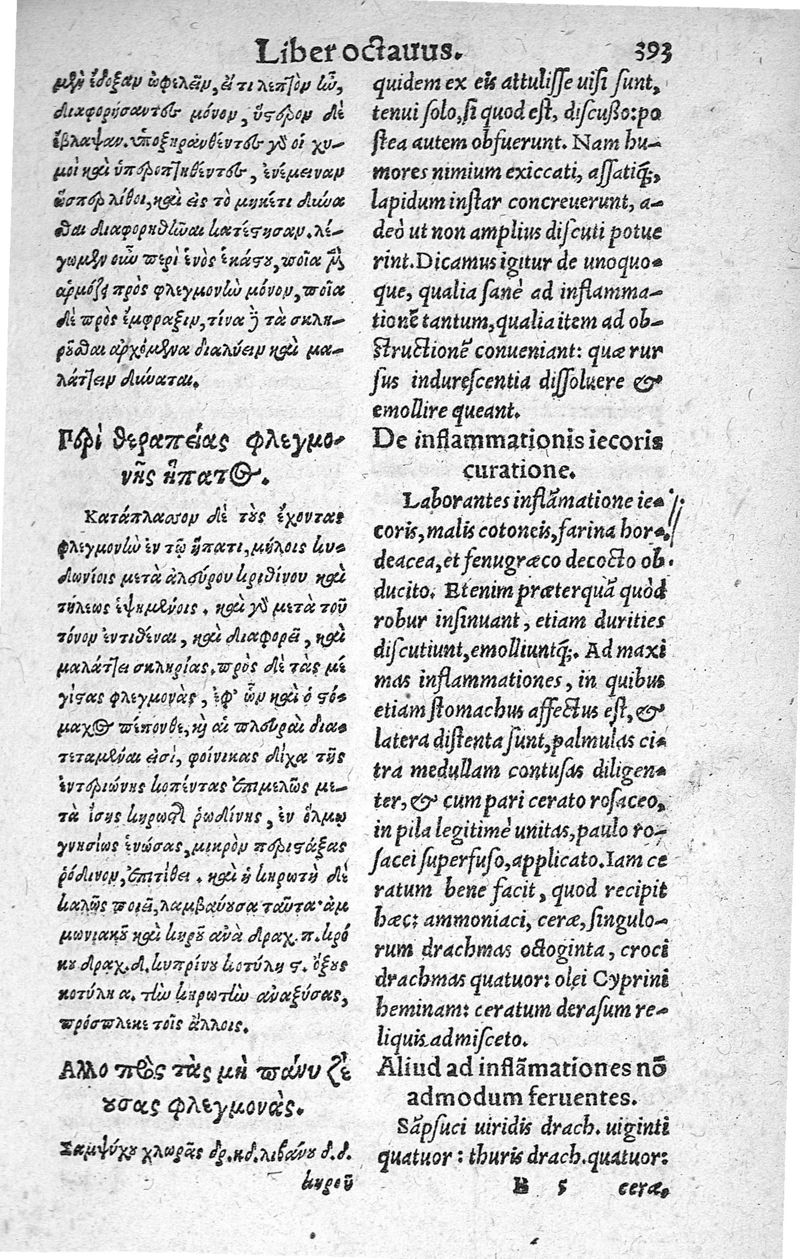 Liber octauus. 393
μὲν ἔδοξαν ὠφελεῖν, εἴ τι λεπτὸν ἦν,
διαφορήσαντες μόνον, ὕστερον δὲ
ἔβλαψαν. ὑποξηρανθέντες γὰρ οἱ χυ-
μοὶ καὶ ὑπεροπτηθέντες, ἐνέμειναν
ὥσπερ λίθοι, καὶ εἰς τὸ μηκέτι δύνα
σθαι διαφορηθῆναι κατέστησαν. λέ-
γωμεν οὖν περὶ ἑνὸς ἑκάστου, ποῖα μὲν
ἁρμόζει πρὸς φλεγμονὴν μόνον, ποῖα
δὲ πρὸς ἔμφραξιν, τίνα δὲ τὰ σκλη-
ροῦσθαι ἀρχόμενα διαλύειν καὶ μα-
λάττειν δύναται.
Περὶ θεραπείας φλεγμο-
νῆς ἥπατος.
Κατάπλασσον δὲ τοὺς ἔχοντας
φλεγμονὴν ἐν τῷ ἥπατι, μήλοις κυ-
δωνίοις μετὰ ἀλεύρου κριθίνου καὶ
τήλεως ἑψημένοις. καὶ γὰρ μετὰ τοῦ
τόνον ἐντιθέναι, καὶ διαφορεῖ, καὶ
μαλάττει σκληρίας. πρὸς δὲ τὰς με
γίστας φλεγμονὰς, ἐφ' ὧν καὶ ὁ στό-
μαχος πέπονθε, καὶ αἱ πλευραὶ δια-
τεταμέναι εἰσὶ, φοίνικας δίχα τῆς
ἐντεριώνης κοπέντας ἐπιμελῶς με-
τὰ ἴσης κηρωτῇ ῥωδίνης, ἐν ὅλμῳ
γνησίως ἑνώσας, μικρὸν περιστάξας
ῥόδινον, ἐπιτίθει. καὶ ἡ κηρωτὴ δὲ
καλῶς ποιεῖ, λαμβάνουσα ταῦτα· ἀμ
μωνιακοῦ καὶ κηροῦ ἀνὰ δραχ. π. κρό
κου δραχ. δ. κυπρίνου κοτύλης. ὄξους
κοτύλη α. τὴν κηρωτὴν ἀναξύσας,
πρόσπλεκε τοῖς ἄλλοις.
Αλλο πρὸς τὰς μὴ πάνυ ζε
ούσας φλεγμονὰς.
Σαμψύχου χλωρᾶς δρ. κδ. λιβάνου δ. δ.
κηροῦ
quidem ex eis attulisse uisi sunt,
tenui solo, si quod est, discusso: po
stea autem obfuerunt. Nam hu-
mores nimium exiccati, assatiq́;,
lapidum instar concreuerunt, a-
deò ut non amplius discuti potue
rint. Dicamus igitur de unoquo-
que, qualia sanè ad inflamma-
tionē tantum, qualia item ad ob-
structionē conueniant: quæ rur
sus indurescentia dissoluere &
emollire queant.
De inflammationis iecoris
curatione.
Laborantes inflāmatione ie-
coris, malis cotoneis, farina hor-
deacea, et fenugræco decocto ob-
ducito. Etenim præterquā quòd
robur insinuant, etiam durities
discutiunt, emolliuntq́;. Ad maxi
mas inflammationes, in quibus
etiam stomachus affectus est, &
latera distenta sunt, palmulas ci-
tra medullam contusas diligen-
ter, & cum pari cerato rosaceo,
in pila legitimè unitas, paulo ro-
sacei superfuso, applicato. Iam ce
ratum bene facit, quod recipit
hæc: ammoniaci, ceræ, singulo-
rum drachmas octoginta, croci
drachmas quatuor: olei Cyprini
heminam: ceratum derasum re-
liquis admisceto.
Aliud ad inflāmationes nō
admodum feruentes.
Sāpsuci uiridis drach. uiginti
quatuor: thuris drach. quatuor:
B 5 ceræ,